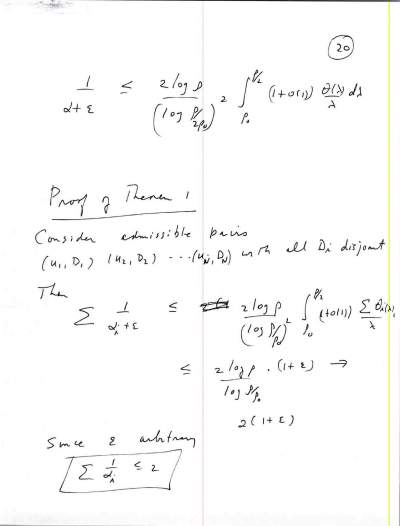 20
1/(α+ε) ≤ 2 log ρ/(log ρ/2ρ₀)² ∫_{ρ₀}^{ρ/2} (1+o(1)) θ(λ)/λ dλ
Proof of Theorem 1
Consider admissible pairs
(u₁, D₁) (u₂, D₂) ⋯ (u_N, D_N) with all Di disjoint
Then
∑ 1/(α_i+ε) ≤ 2 log ρ/(log ρ/ρ₀)² ∫_{ρ₀}^{ρ/2} (1+o(1)) ∑ θ_i(λ)/λ
≤ 2 log ρ/log ρ/ρ₀ · (1+ε) →
2(1+ε)
Since ε arbitrary
∑ 1/α_i ≤ 2